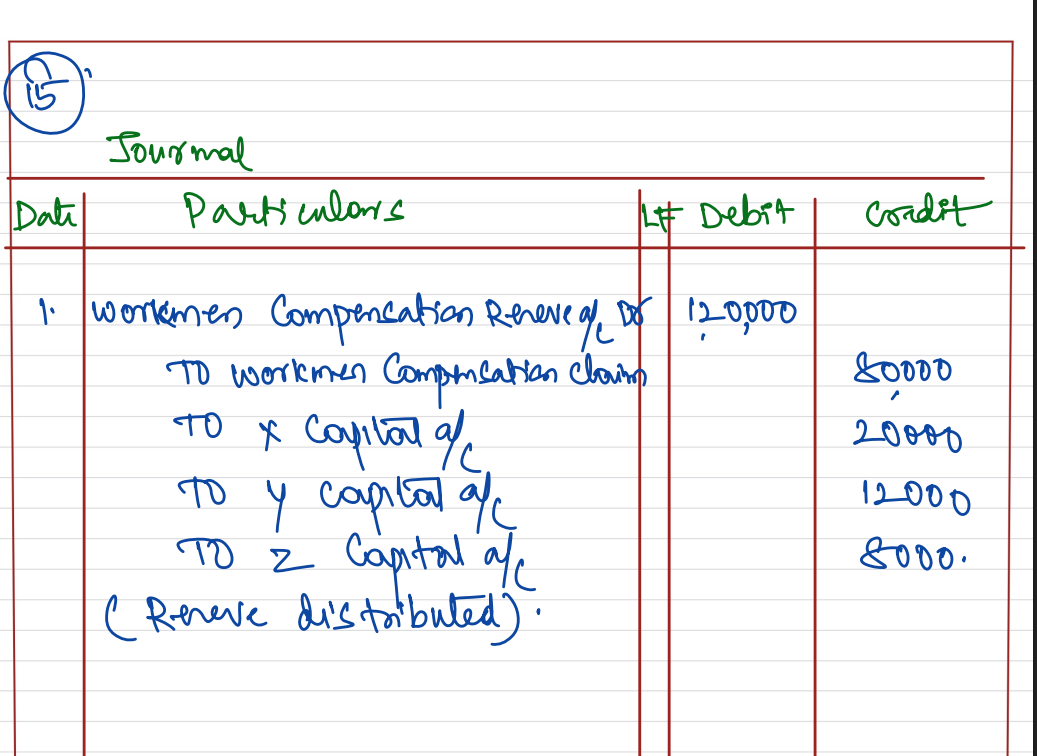 Q 15
Journal
Date Particulars LF Debit Credit
1. Workmen Compensation Reserve a/c Dr 120,000
TO workmen Compensation claim 80000
TO X Capital a/c 20000
TO Y capital a/c 12000
TO Z Capital a/c 8000.
(Reserve distributed).